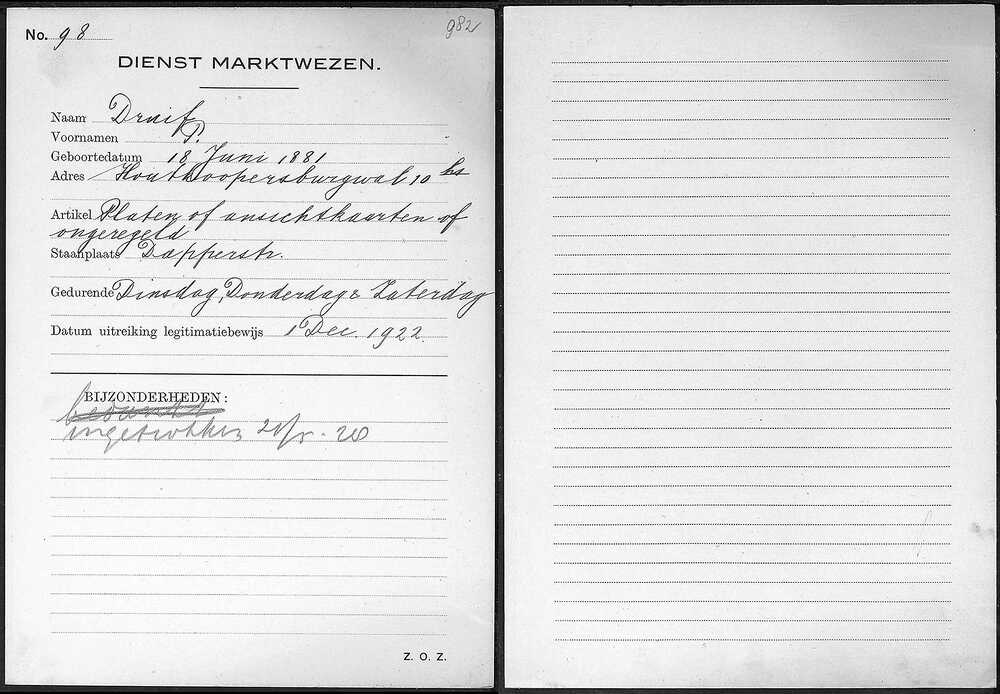 No. 98
982
DIENST MARKTWEZEN.
Naam Druif
Voornamen P.
Geboortedatum 18 Juni 1881
Adres Houtkoopersburgwal 10 hs
Artikel Platen of ansichtkaarten of
ongeregeld
Staanplaats Dapperstr.
Gedurende Dinsdag, Donderdag & Zaterdag
Datum uitreiking legitimatiebewijs 1 Dec. 1922.
BIJZONDERHEDEN:
ingetrokken 21/5 - 28
Z. O. Z.